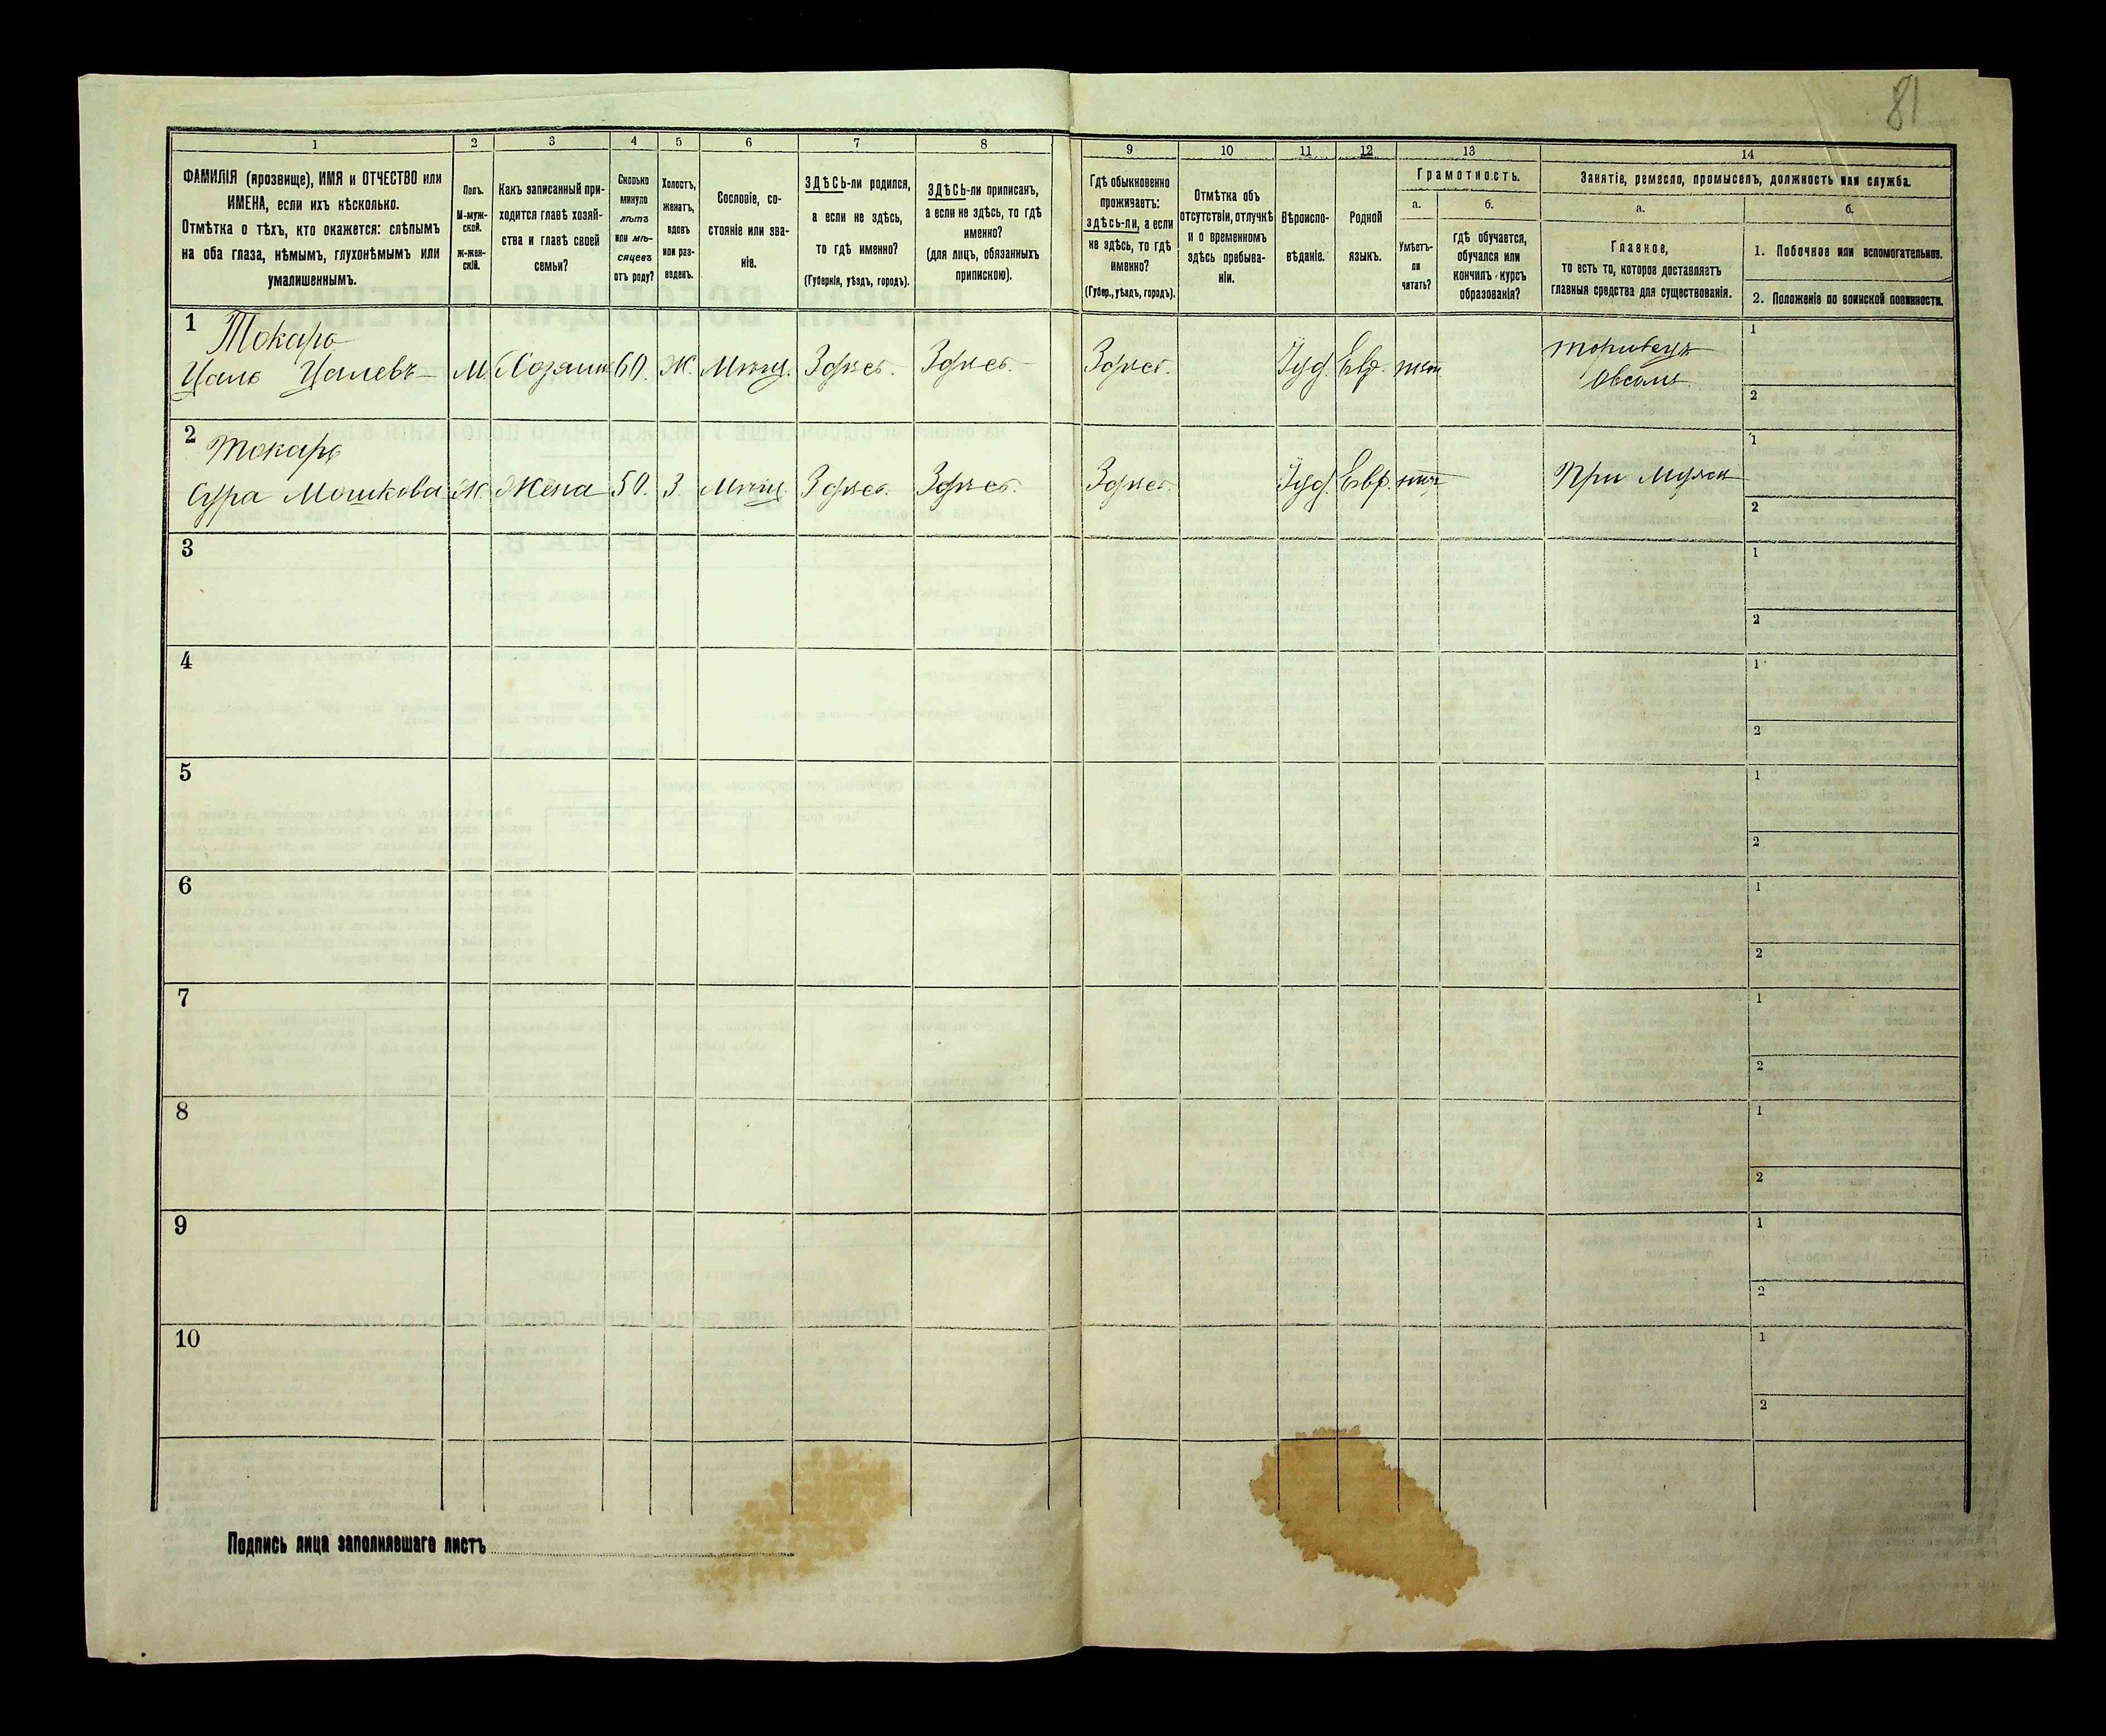 81
1
2
3
4
5
6
7
8
9
10
11
12
13
14
ФАМИЛІЯ (прозвище), ИМЯ и ОТЧЕСТВО или
ИМЕНА, если ихъ нѣсколько.
Отмѣтка о тѣхъ, кто окажется: слѣпымъ
на оба глаза, нѣмымъ, глухонѣмымъ или
умалишеннымъ.
Полъ.
М-муж-
ской.
Ж-жен-
скій.
Какъ записанный при-
ходится главѣ хозяй-
ства и главѣ своей
семьи?
Сколько
минуло
лѣтъ
или мѣ-
сяцевъ
отъ роду?
Холостъ,
женатъ,
вдовъ
или раз-
веденъ.
Сословіе, со-
стояніе или зва-
ніе.
ЗДѢСЬ-ли родился,
а если не здѣсь,
то гдѣ именно?
(Губернія, уѣздъ, городъ).
ЗДѢСЬ-ли приписанъ,
а если не здѣсь, то гдѣ
именно?
(для лицъ, обязанныхъ
припискою).
Гдѣ обыкновенно
проживаетъ:
здѣсь-ли, а если
не здѣсь, то гдѣ
именно?
(Губер., уѣздъ, городъ).
Отмѣтка объ
отсутствіи, отлучкѣ
и о временномъ
здѣсь пребыва-
ніи.
Вѣроиспо-
вѣданіе.
Родной
языкъ.
Грамотность.
а.
Умѣетъ-
ли
читать?
б.
гдѣ обучается,
обучался или
кончилъ курсъ
образованія?
Занятіе, ремесло, промыселъ, должность или служба.
а.
Главное,
то есть то, которое доставляетъ
главныя средства для существованія.
б.
1. Побочное или вспомогательное.
2. Положеніе по воинской повинности.
1
Токарь
Цаль Цалевъ М. Хозяинъ 60. Ж. Мѣщ. Здѣсь. Здѣсь. Здѣсь. Іуд. Евр. нѣтъ
торговецъ
овсомъ
1
2
2
Токарь
Сура Мошкова Ж. Жена 50. З. Мѣщ. Здѣсь. Здѣсь. Здѣсь. Іуд. Евр. нѣтъ При мужѣ
1
2
3
1
2
4
1
2
5
1
2
6
1
2
7
1
2
8
1
2
9
1
2
10
1
2
Подпись лица заполнявшаго листъ